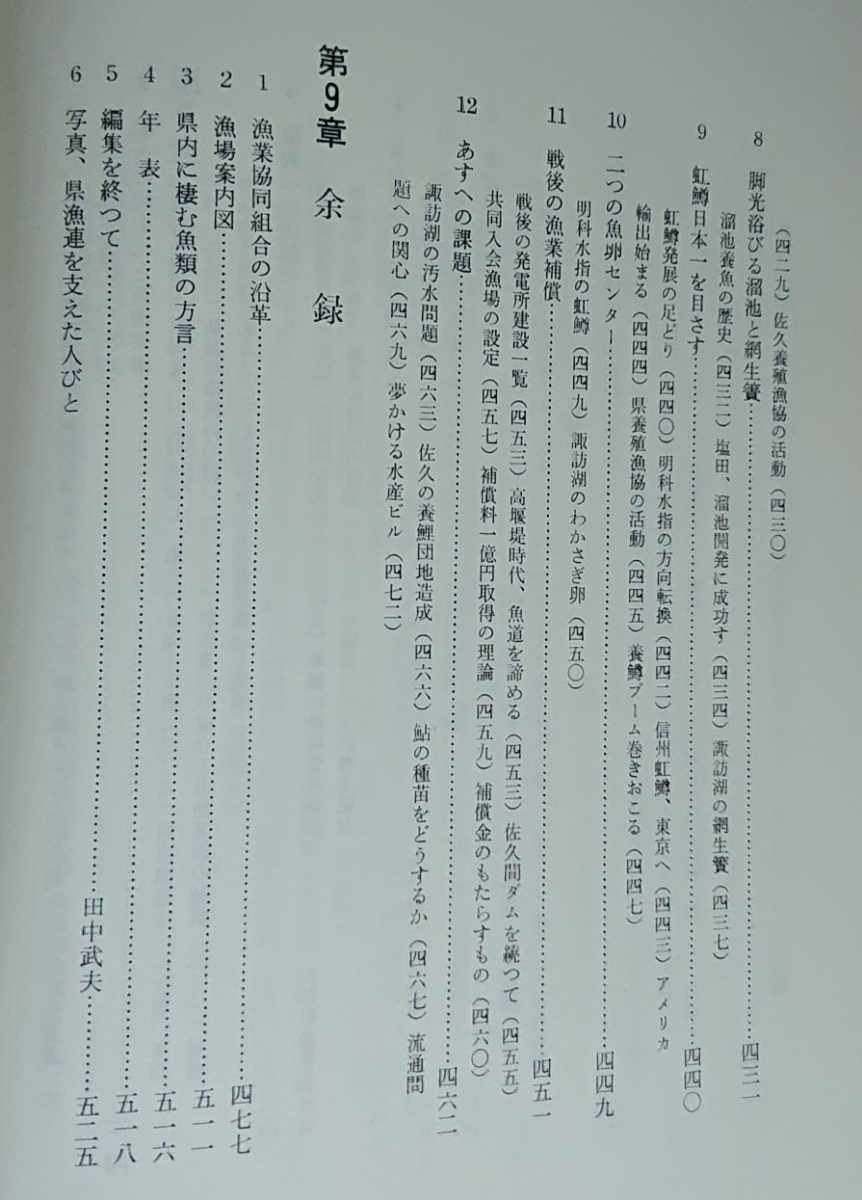 (四二九) 佐久養殖漁協の活動 (四三〇)
8 脚光浴びる溜池と網生簀……四三一
溜池養魚の歴史 (四三二) 塩田、溜池開発に成功す (四三四) 諏訪湖の網生簀 (四三七)
9 虹鱒日本一を目さす……四四〇
虹鱒発展の足どり (四四〇) 明科水指の方向転換 (四四二) 信州虹鱒、東京へ (四四三) アメリカ
輸出始まる (四四四) 県養殖漁協の活動 (四四五) 養鱒ブーム巻きおこる (四四七)
10 二つの魚卵センター……四四九
明科水指の虹鱒 (四四九) 諏訪湖のわかさぎ卵 (四五〇)
11 戦後の漁業補償……四五一
戦後の発電所建設一覧 (四五三) 高堰堤時代、魚道を諦める (四五三) 佐久間ダムを繞つて (四五五)
共同入会漁場の設定 (四五七) 補償料一億円取得の理論 (四五九) 補償金のもたらすもの (四六〇)
12 あすへの課題……四六二
諏訪湖の汚水問題 (四六三) 佐久の養鯉団地造成 (四六六) 鮎の種苗をどうするか (四六七) 流通問
題への関心 (四六九) 夢かける水産ビル (四七二)
第9章 余録
1 漁業協同組合の沿革……四七七
2 漁場案内図……五一一
3 県内に棲む魚類の方言……五一六
4 年表……五一八
5 編集を終つて……田中武夫……五二五
6 写真、県漁連を支えた人びと